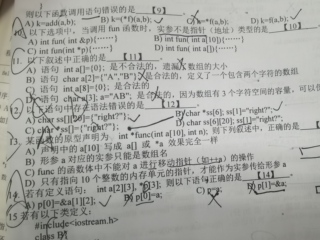 则以下函数调用语句错误的是 【9】
A) k=add(a,b); B) k=(*f)(a,b); C) k=*f(a,b); D) k=f(a,b);
10. 以下选项中,当调用 fun 函数时,实参不是指针(地址)类型的是 【10】
A) int fun( int &p){……} B) int fun( int a[10]){……}
C) int fun(int *p){……} D) int fun( int a[]){……}
11. 以下叙述中正确的是 【11】
A) 语句 int a[]={0}; 是不合法的,遗漏数组的大小
B) 语句 char a[2]={"A","B"}; 是合法的,定义了一个包含两个字符的数组
C) 语句 int a[8]={0}; 是合法的
D) 语句 char a[3]; a="AB"; 是合法的,因为数组有 3 个字符空间的容量,可以
12. 以下语句中存在语法错误的是 【12】
A) char ss[][20]={"right?"}; B) char *ss[6]; ss[1]="right?";
C) char *ss[]={"right?"}; D) char ss[6][20]; ss[1]="right?";
13. 某函数的原型声明为 int *func(int a[10], int n); 则下列叙述中,正确的是
A) 声明中的 a[10] 写成 a[] 或 *a 效果完全一样
B) 形参 a 对应的实参只能是数组名
C) func 的函数体中不能对 a 进行移动指针(如++a)的操作
D) 只有指向 10 个整数的内存单元的指针,才能作为实参传给形参 a
14. 若有定义语句: int a[2][3], *p[3]; 则以下语句正确的是 【14】
A) p[0]=&a[1][2]; B) p[0]=a; C) p=a; D) p[1]=&a;
15 若有以下类定义:
#include<iostream.h>
class B{